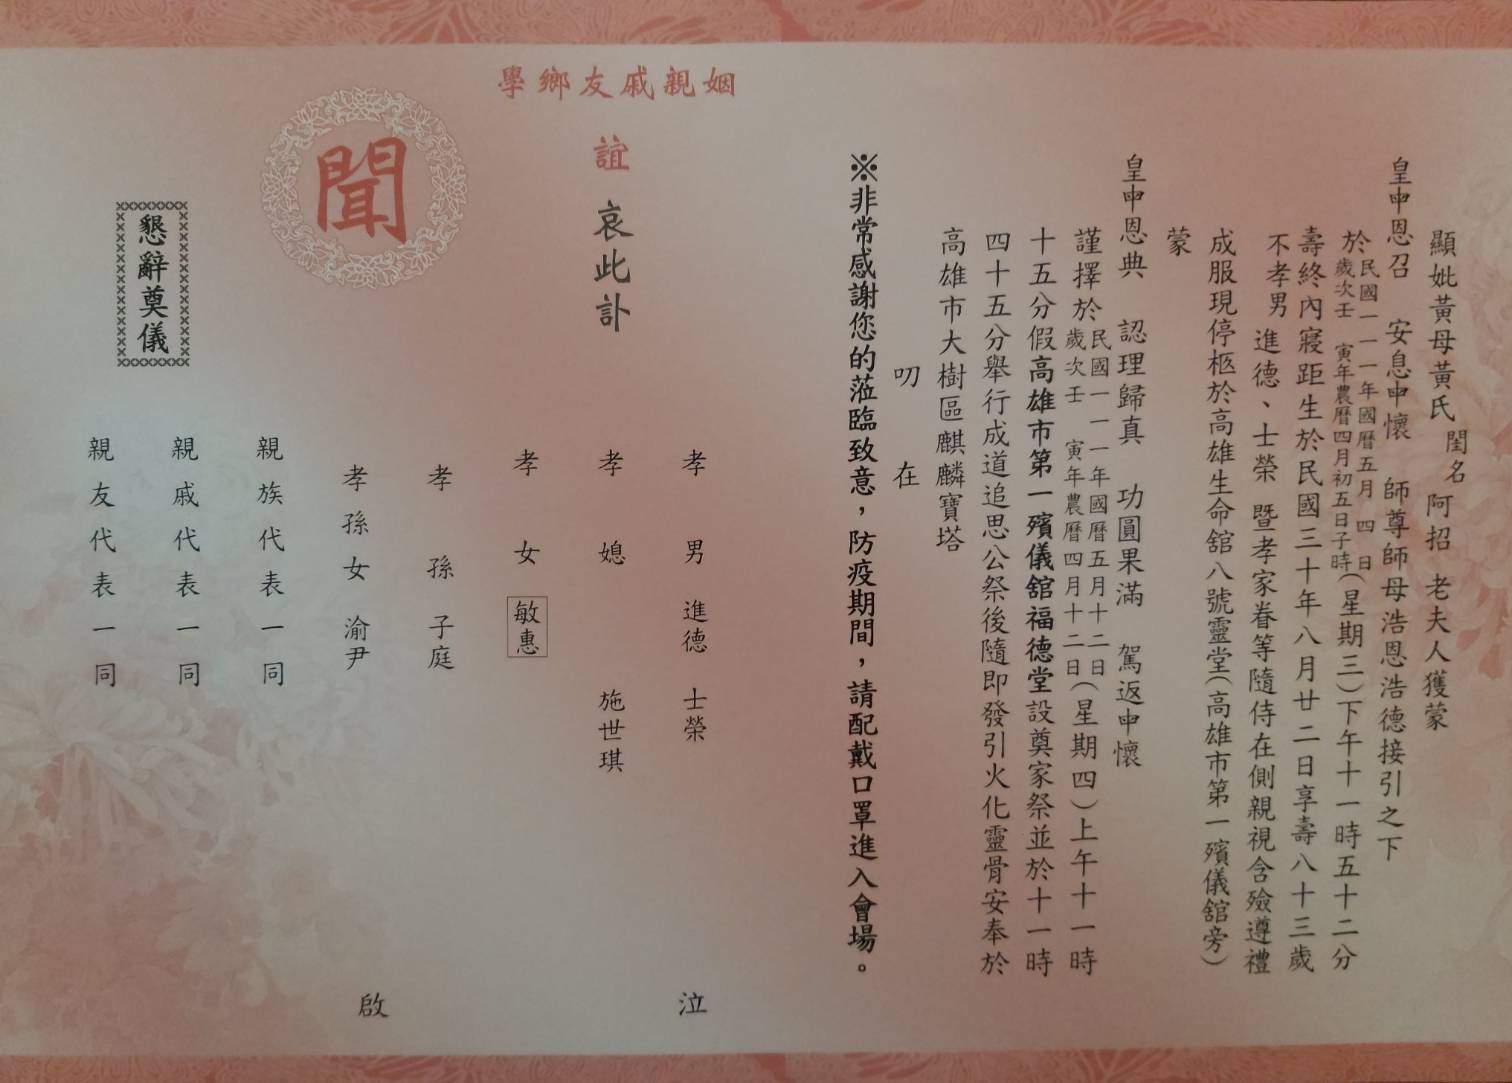 顯妣黃母黃氏閨名阿招 老夫人獲蒙
皇申恩召 安息申懷 師尊師母浩恩浩德接引之下
於民國一一一年國曆五月四日歲次壬寅年農曆四月初五日子時(星期三)下午十一時五十二分
壽終內寢距生於民國三十年八月廿二日享壽八十三歲
不孝男進德、士榮 暨孝家眷等隨侍在側親視含殮遵禮
成服現停柩於高雄生命舘八號靈堂(高雄市第一殯儀舘旁)
蒙
皇申恩典 認理歸真 功圓果滿 駕返申懷
謹擇於民國一一一年國曆五月十二日歲次壬寅年農曆四月十二日(星期四)上午十一時
十五分假高雄市第一殯儀舘福德堂設奠家祭並於十一時
四十五分舉行成道追思公祭後隨即發引火化靈骨安奉於
高雄市大樹區麒麟寶塔
叨 在
※非常感謝您的蒞臨致意,防疫期間,請配戴口罩進入會場。
姻親戚友鄉學
誼 哀此訃
聞
孝男 進德 士榮 泣
孝媳 施世琪
孝女 敏惠
孝孫 子庭
孝孫女 渝尹 啟
親族代表一同
親戚代表一同
親友代表一同
懇辭奠儀